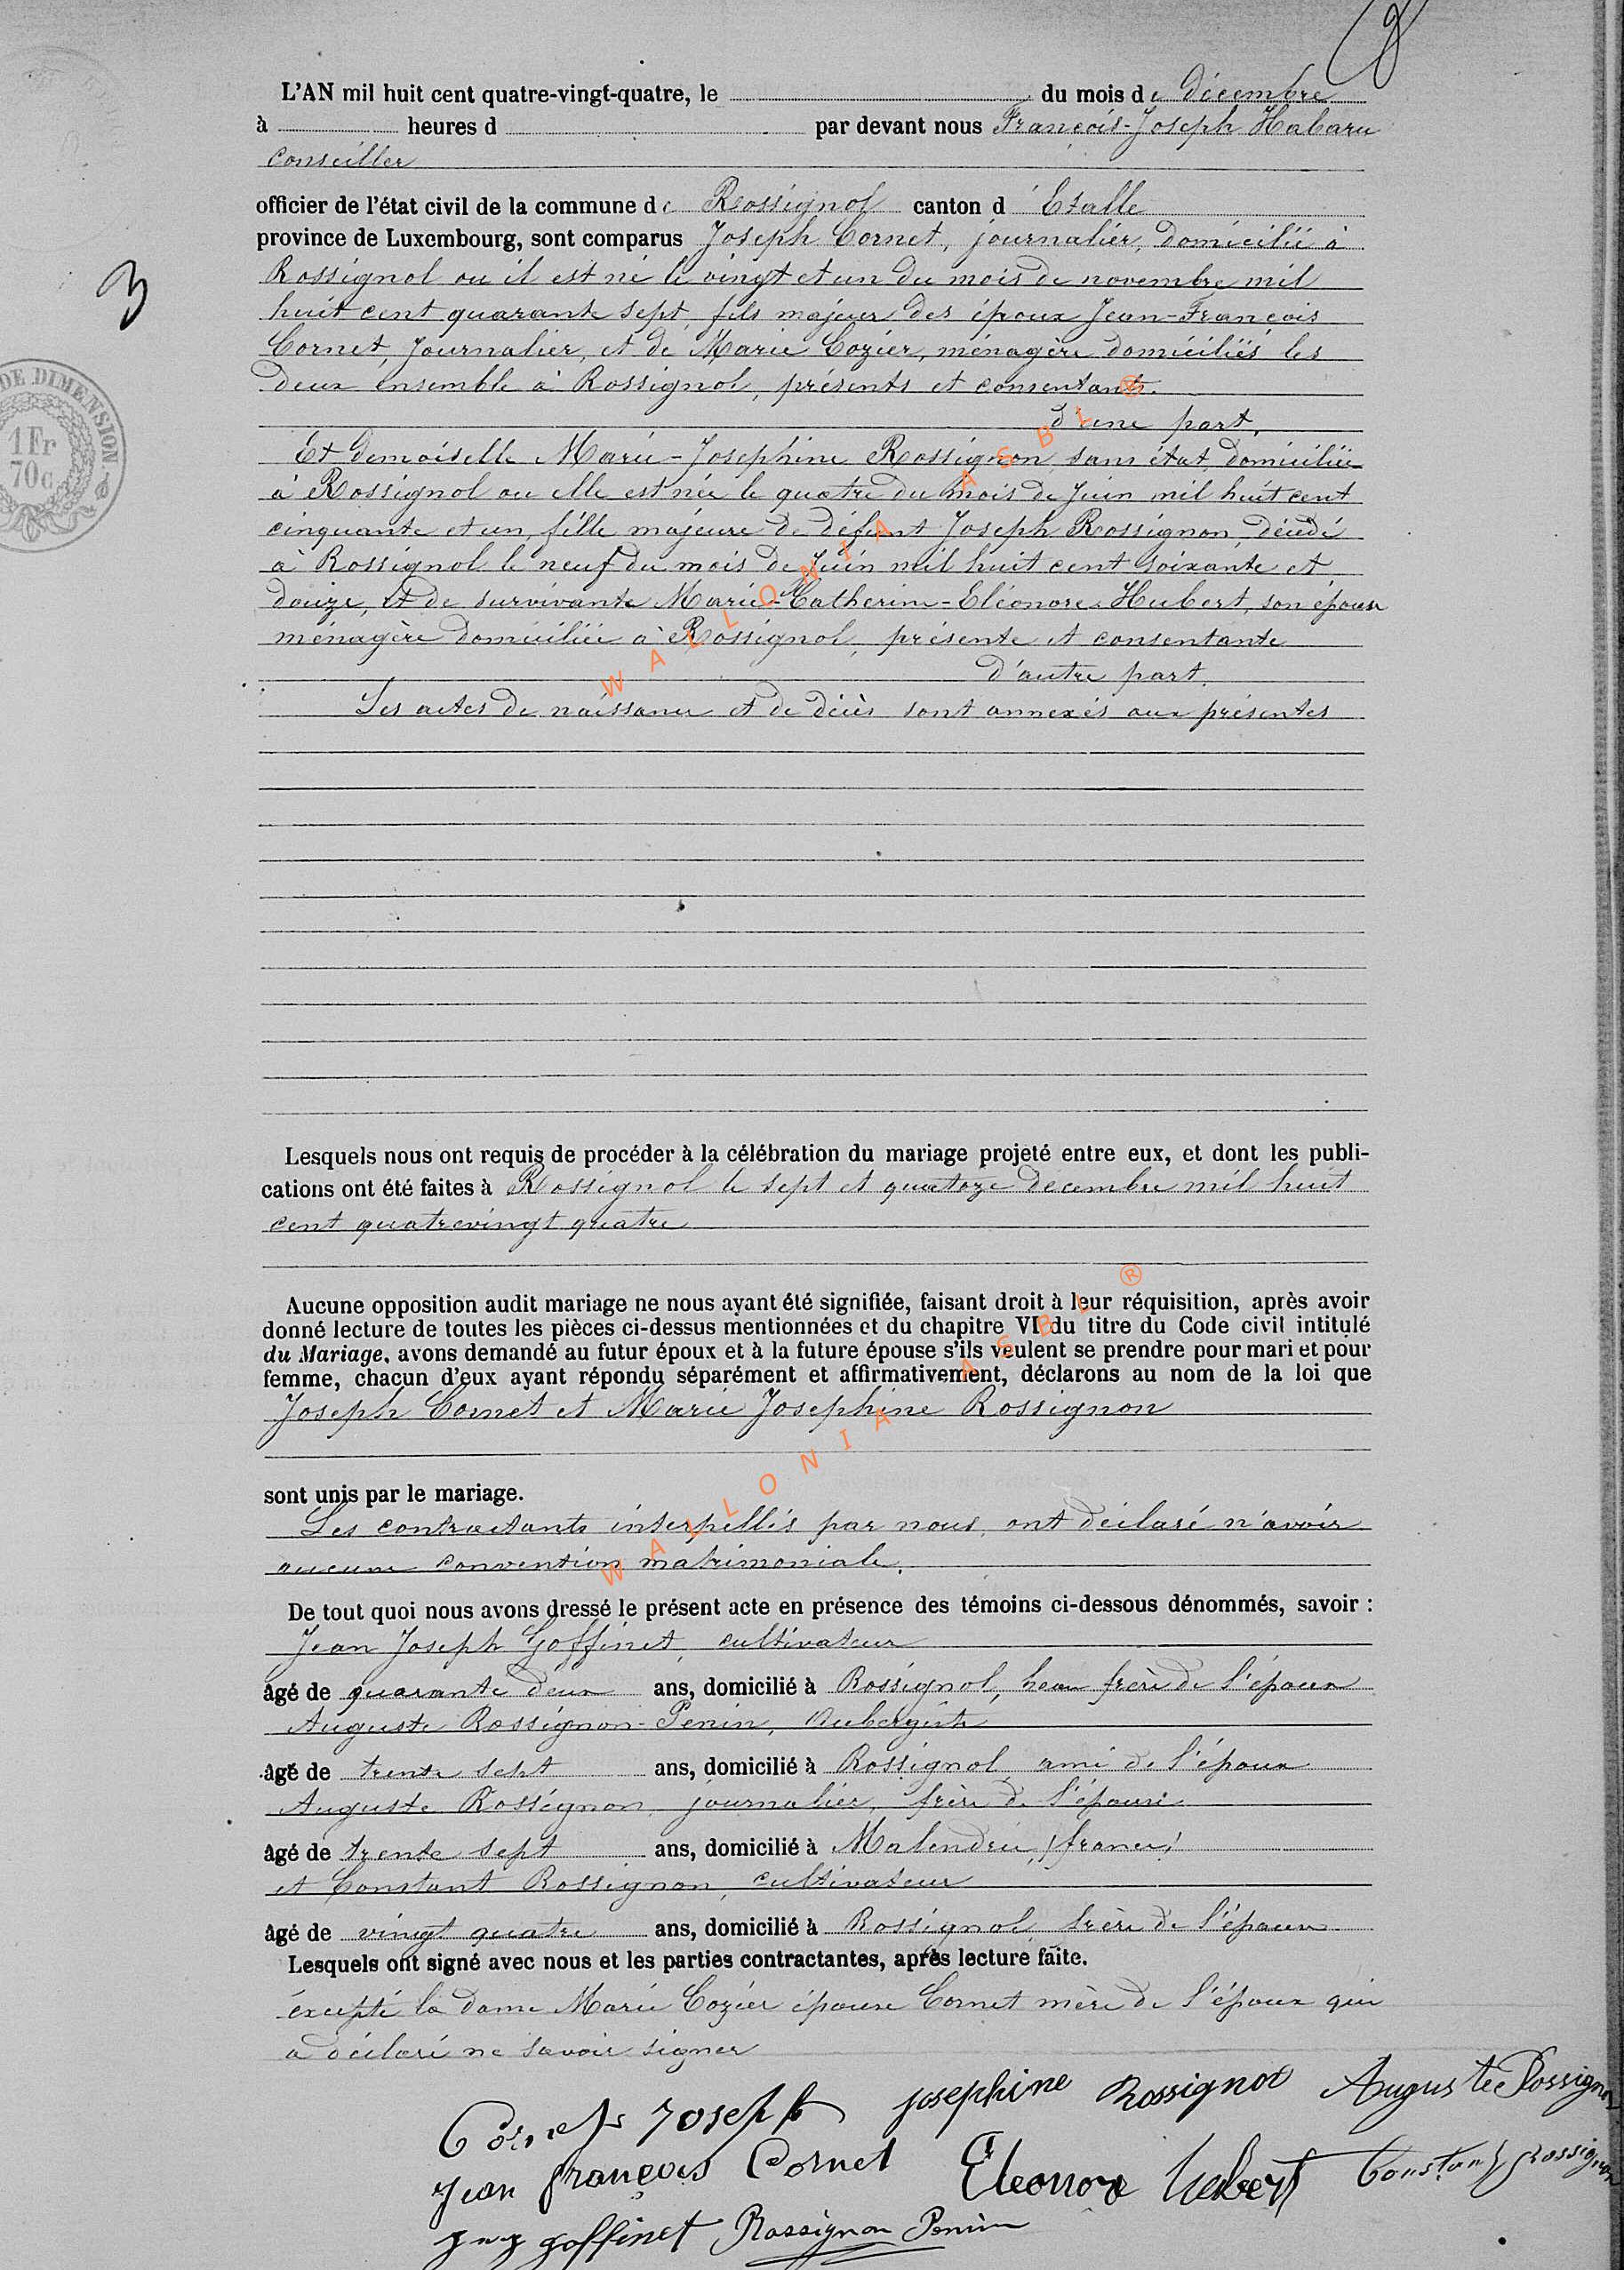 L'AN mil huit cent quatre-vingt-quatre, le du mois de décembre
à heures d par devant nous François-Joseph Habaru
conseiller
officier de l'état civil de la commune de Rossignol canton d'Etalle
province de Luxembourg, sont comparus Joseph Cornet, journalier, domicilié à
Rossignol ou il est né le vingt et un du mois de novembre mil
huit cent quarante sept, fils majeur des époux Jean-François
Cornet, Journalier, et de Marie Cozier, ménagère domiciliés les
deux ensemble à Rossignol, présents et consentants.
d'une part,
Et demoiselle Marie-Josephine Rossignon, sans état, domiciliée
à Rossignol ou elle est née le quatre du mois de Juin mil huit cent
cinquante et un, fille majeure de défunt Joseph Rossignon, décédé
à Rossignol le neuf du mois de Juin mil huit cent soixante et
douze, et de survivante Marie-Catherine-Eléonore Hubert, son épouse
ménagère domiciliée à Rossignol, présente et consentante
d'autre part.
Les actes de naissance et de décès sont annexés aux présentes
3
DE DIMENSION
1 Fr
70 c
Lesquels nous ont requis de procéder à la célébration du mariage projeté entre eux, et dont les publi-
cations ont été faites à Rossignol le sept et quatoze decembre mil huit
cent quatrevingt quatre
Aucune opposition audit mariage ne nous ayant été signifiée, faisant droit à leur réquisition, après avoir
donné lecture de toutes les pièces ci-dessus mentionnées et du chapitre VI du titre du Code civil intitulé
du Mariage, avons demandé au futur époux et à la future épouse s'ils veulent se prendre pour mari et pour
femme, chacun d'eux ayant répondu séparément et affirmativement, déclarons au nom de la loi que
Joseph Cornet et Marie Josephine Rossignon
sont unis par le mariage.
Les contractants interpellés par nous, ont déclaré n'avoir
aucune convention matrimoniale.
De tout quoi nous avons dressé le présent acte en présence des témoins ci-dessous dénommés, savoir :
Jean Joseph Goffinet, cultivateur
âgé de quarante deux ans, domicilié à Rossignol, beau frère de l'époux
Auguste Rossignon-Penin, Aubergiste
âgé de trente sept ans, domicilié à Rossignol ami de l'époux
Auguste Rossignon, journalier, frère de l'épouse
âgé de trente sept ans, domicilié à Malendrie, (france)
et Constant Rossignon, cultivateur
âgé de vingt quatre ans, domicilié à Rossignol frère de l'épouse
Lesquels ont signé avec nous et les parties contractantes, après lecture faite.
éxcepté la dame Marie Cozier épouse Cornet mère de l'époux qui
a déclaré ne savoir signer
Cornet Joseph Josephine Rossignol Auguste Rossignon
Jean françois Cornet Eleonore hubert Constant Rossignon
J n J goffinet Rossignon Penin
WALLONIA ASBL ®
WALLONIA ASBL ®